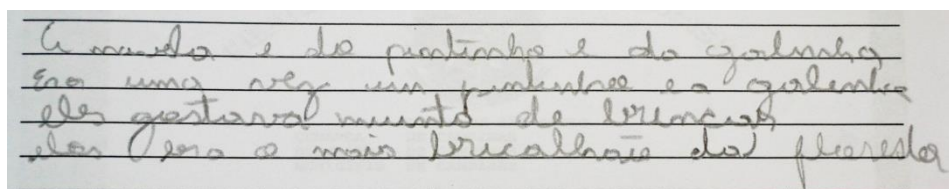 A  e do pintinho e da galinha
Era uma vez um pintinhoo e a galinha
eles gostava muinto de brincar
eles era o mais bricalhão da floresta